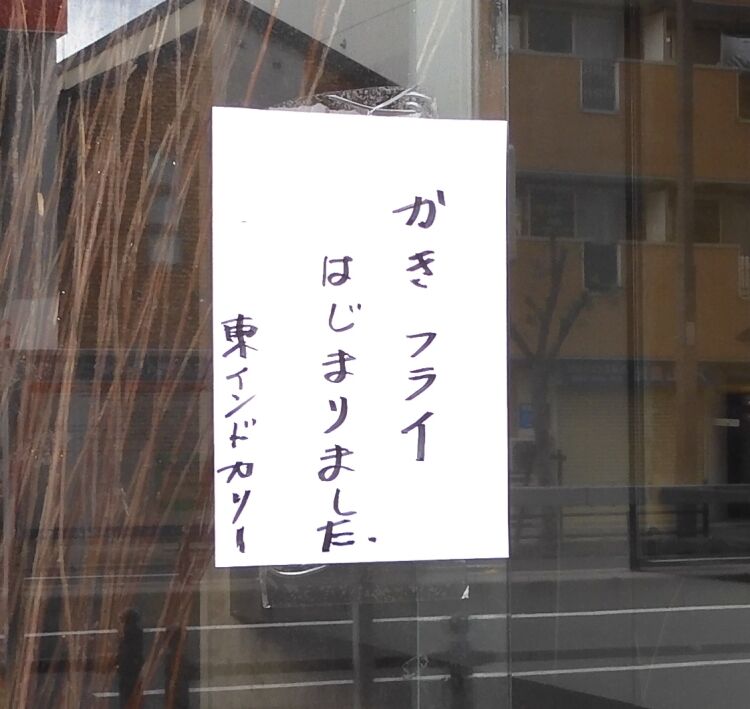 かきフライ
はじまりました.
東インドカリー